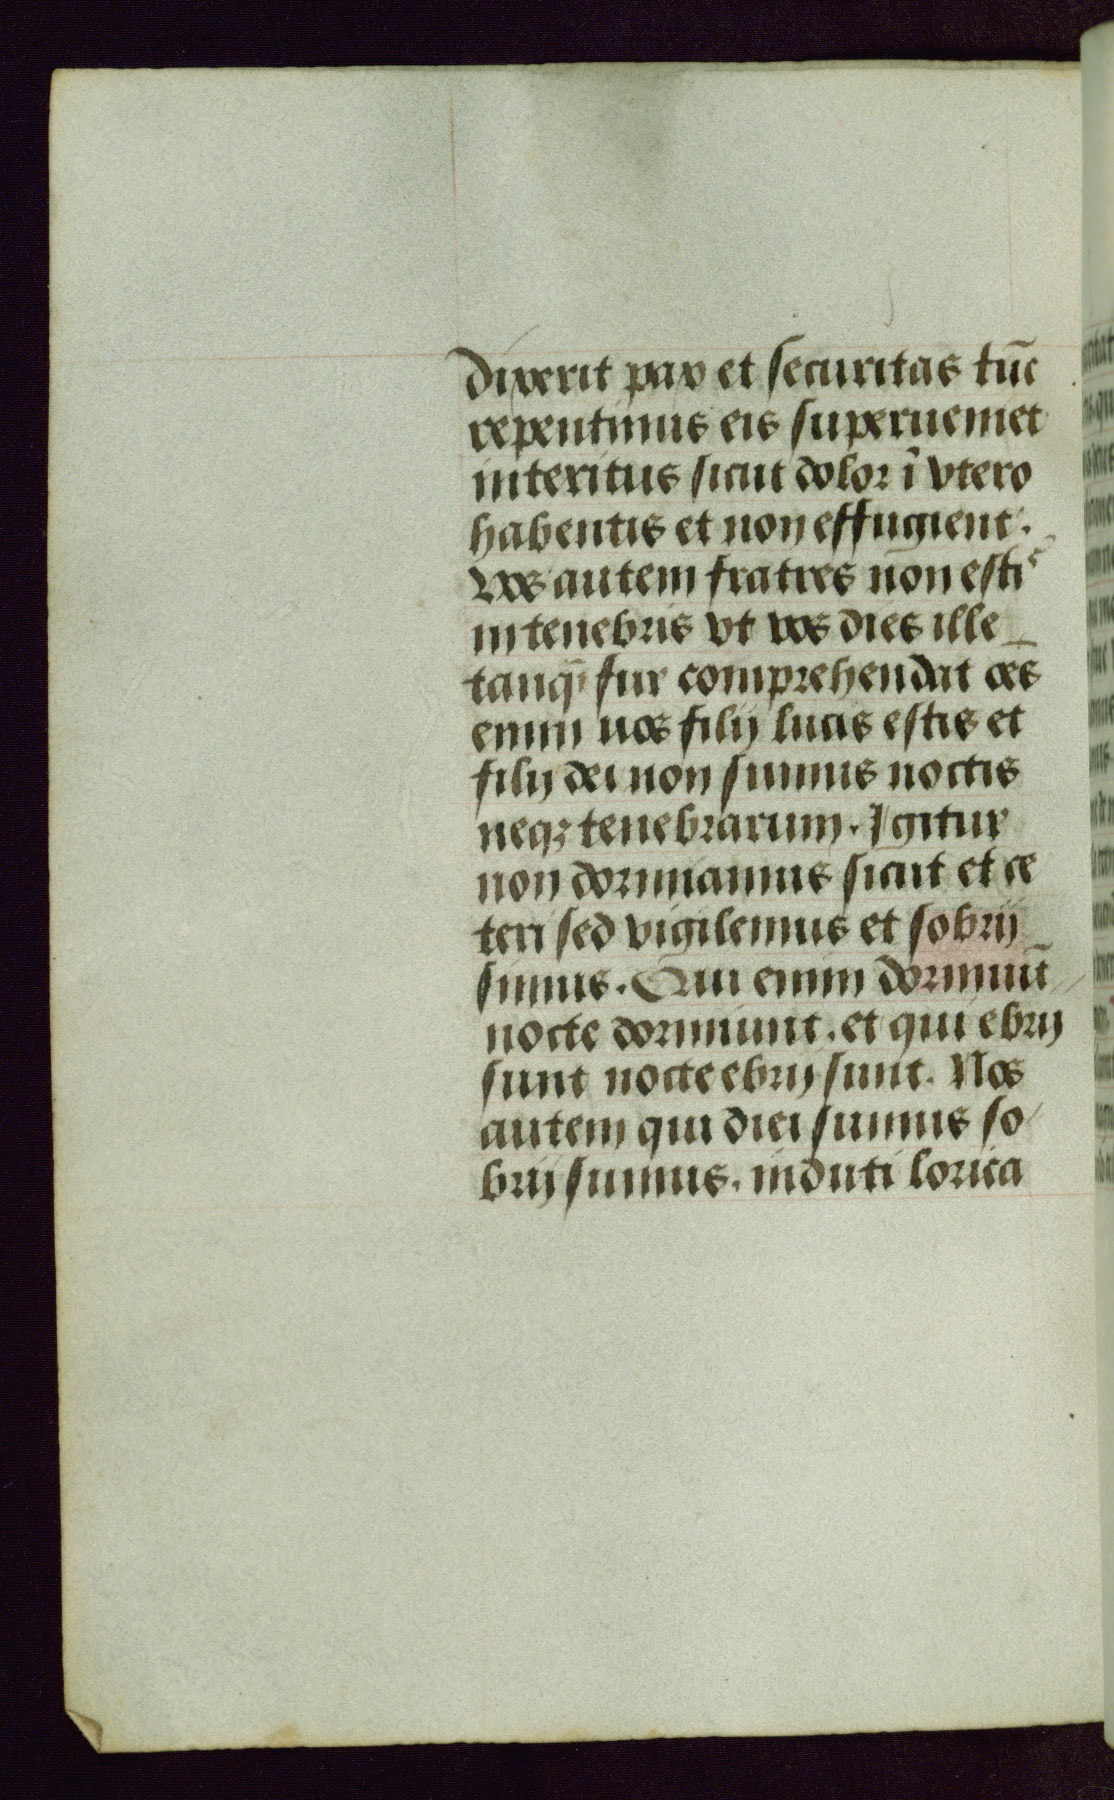 dixerit pax et securitas tūc
repentinus eis superueniet
interitus sicut dolor ī vtero
habentis et non effugient.
Vos autem fratres non estis
in tenebris vt vos dies ille
tanq̄ fur comprehendat oēs
enim uos filij lucis estis et
filij dei non sumus noctis
neqꝫ tenebrarum. Igitur
non dormiamus sicut et ce
teri sed vigilemus et sobrij
simus. Qui enim dormiūt
nocte dormiunt. et qui ebrij
sunt nocte ebrij sunt. Nos
autem qui diei sumus so
brij sumus. induti lorica